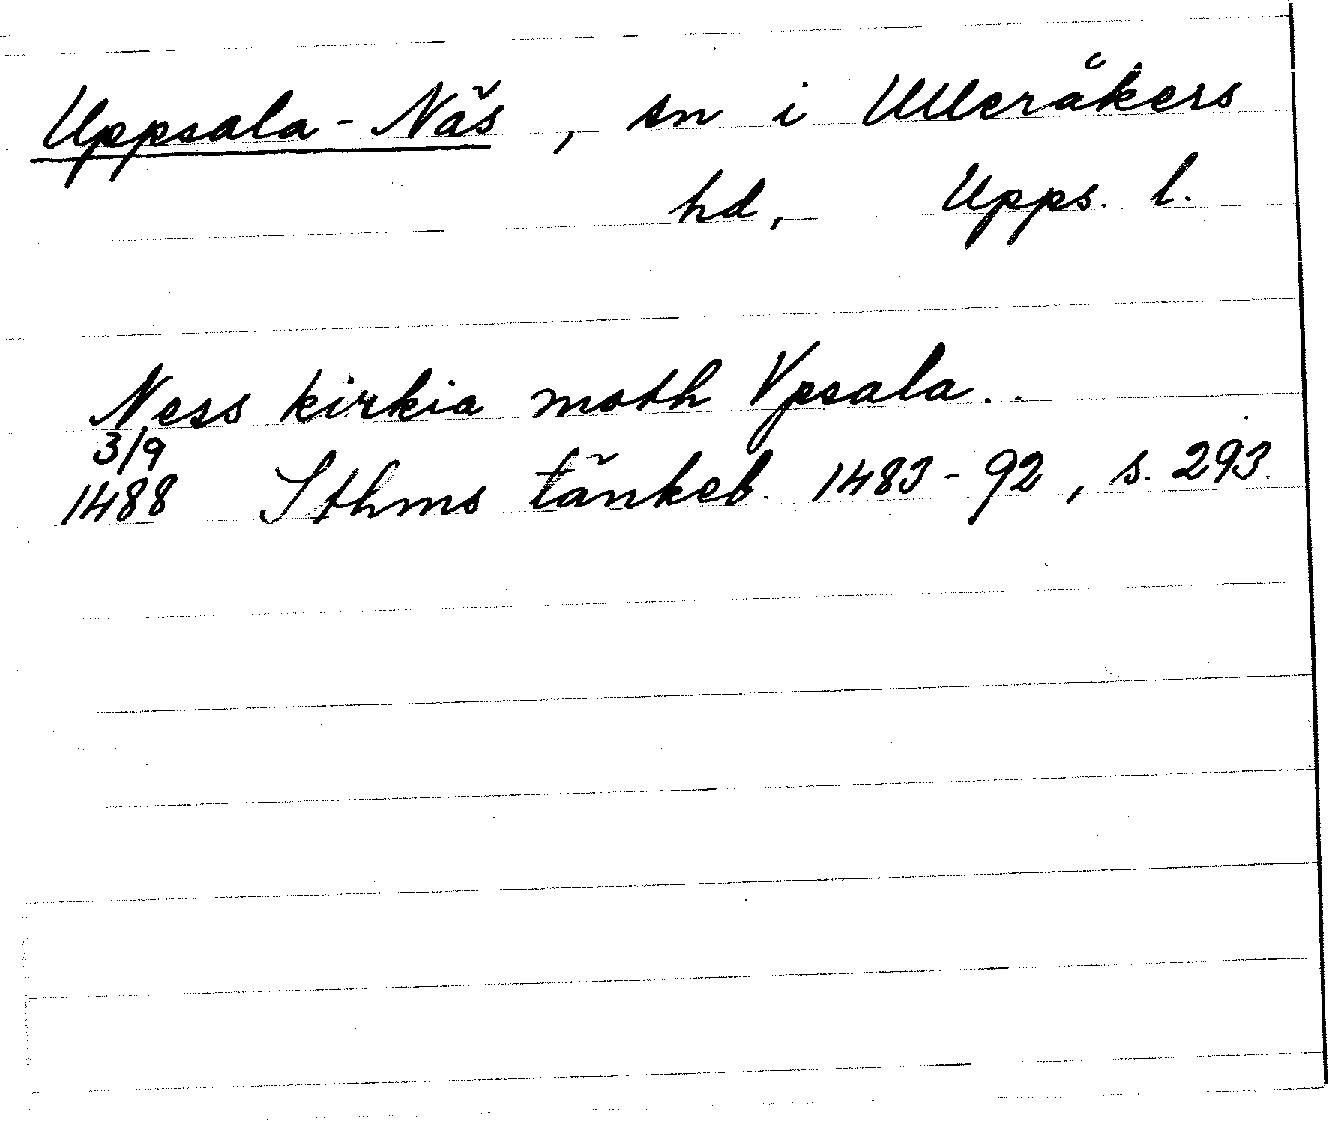 Uppsala-Näs, sn i Ulleråkers
hd, Upps. l.
Ness kirkia moth Vpsala..
3/9
1488 Sthms tänkeb. 1483-92, s. 293.